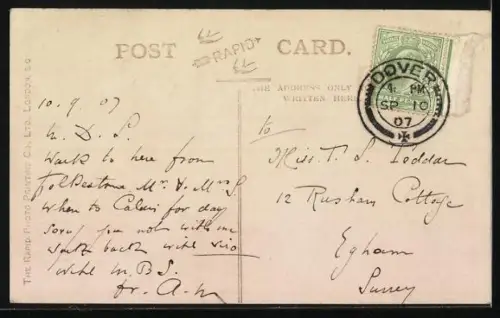 POST CARD.
RAPID
THE ADDRESS ONLY
WRITTEN HERE
DOVER
PM
SP 10
07
THE RAPID PHOTO PRINTING CO., LTD., LONDON, EC
10.9.07
Walk to here from
Folkestone Mr & Mrs S
when to Calais for day
sorry you not with me
back with
write M.B.S.
fr. A.M
to
Miss T. S. Loddar
12 Rusham Cottage
Egham
Surrey